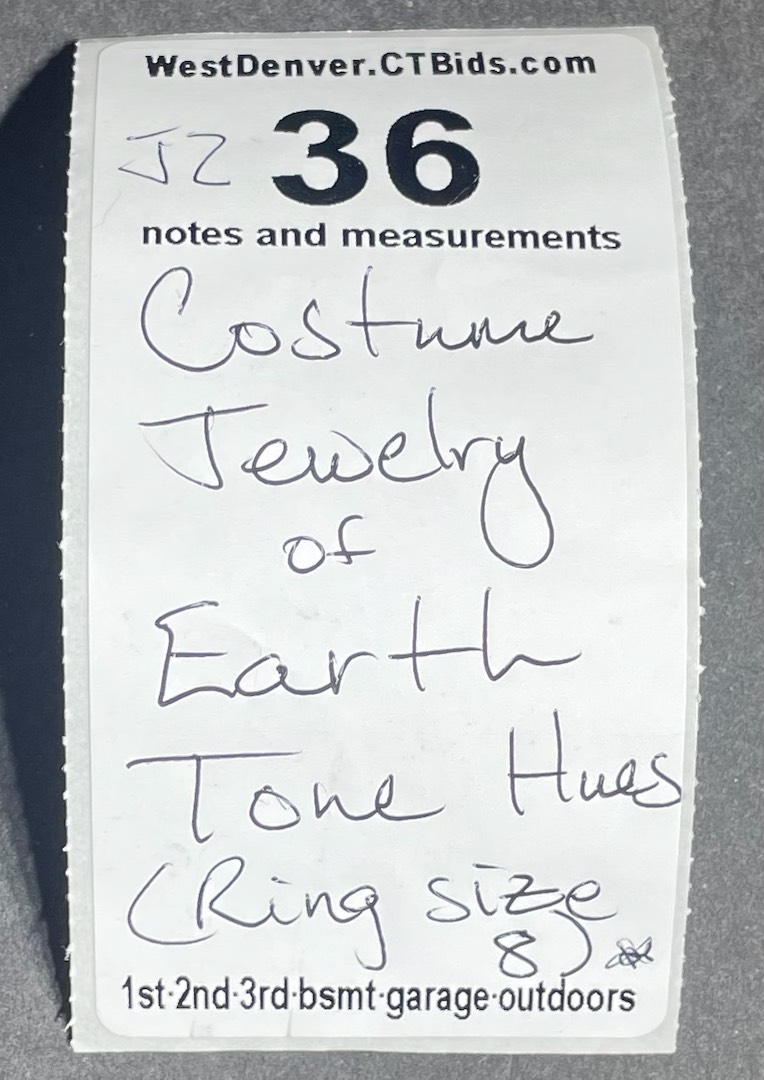 WestDenver.CTBids.com
JZ 36
notes and measurements
Costume
Jewelry
of
Earth
Tone Hues
(Ring size
8)
1st·2nd·3rd·bsmt·garage·outdoors